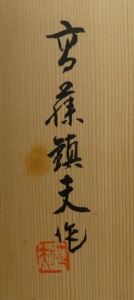 高藤鎮夫作